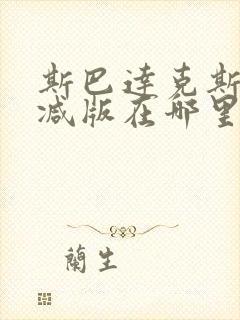 斯巴达克斯
减版在哪里
蘭生